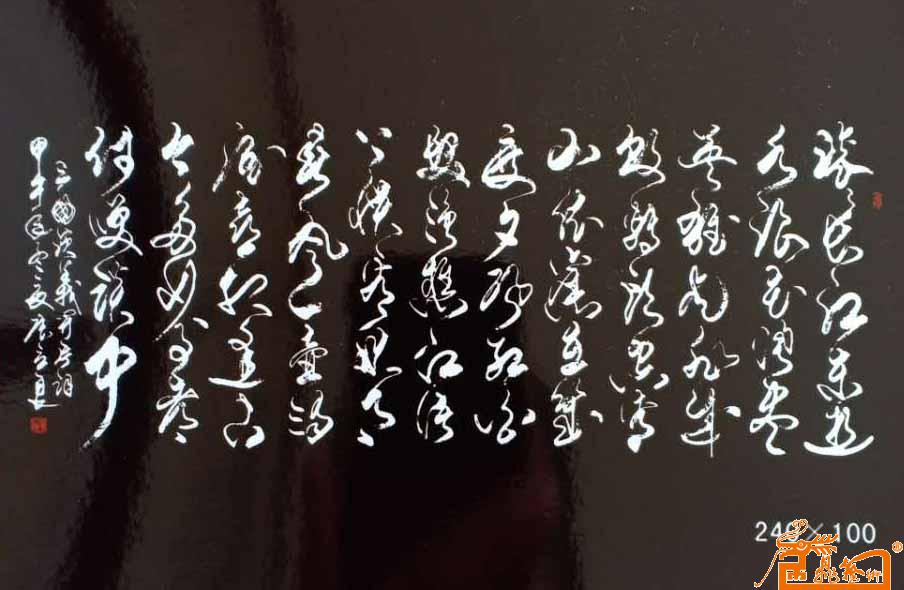 滚滚长江东逝
水浪花淘尽
英雄是非成
败转头空青
山依旧在几
度夕阳红白
发渔樵江渚
上惯看秋月
春风一壶浊
酒喜相逢古
今多少事都
付笑谈中
三国演义开卷词
甲午年
240×100